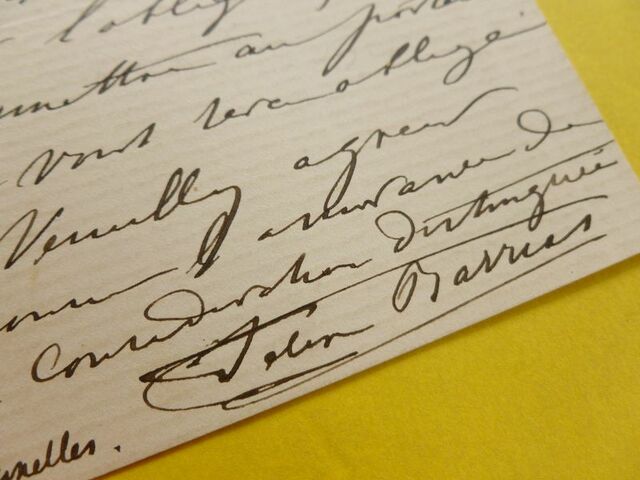 l'oblig
mettre au porteur
vous sera obligé.
Veuillez agréer
l'assurance de
considération distinguée
Félix Barrias
uxelles.